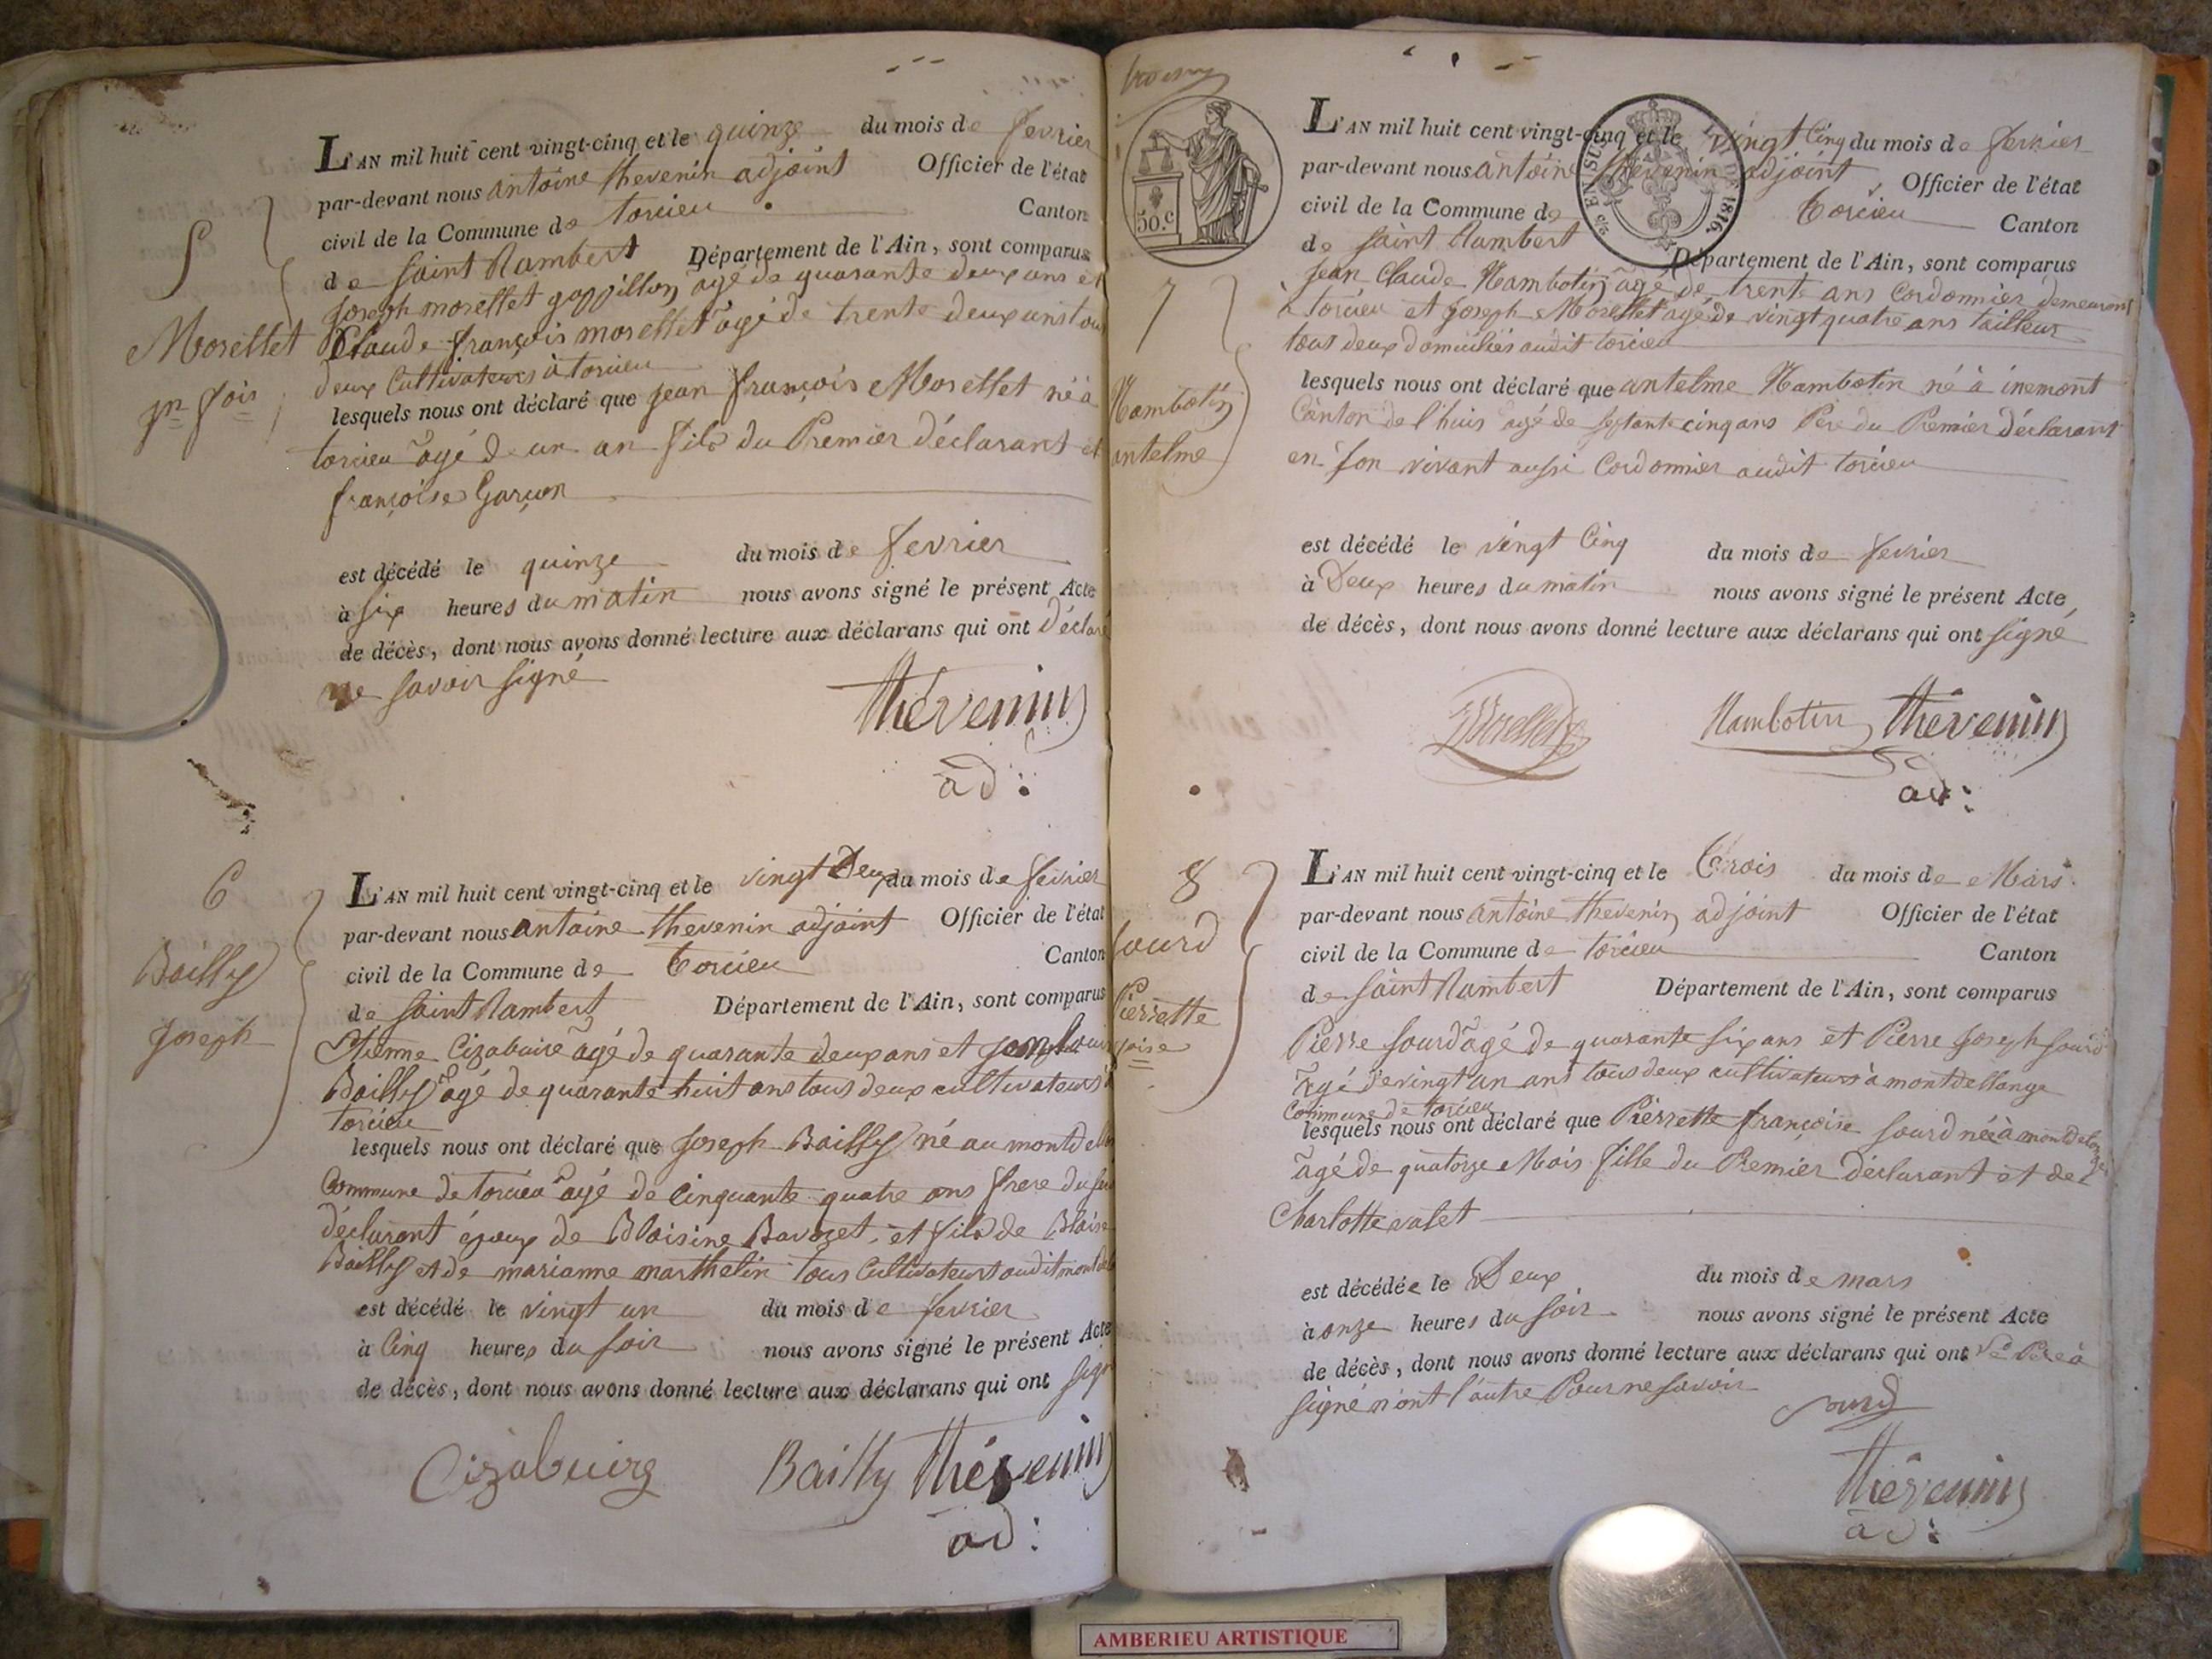 5
Morellet
jn fois
L'AN mil huit cent vingt-cinq et le quinze du mois de fevrier
par-devant nous antoine thevenin adjoint Officier de l'état
civil de la Commune de torcieu Canton
de saint Rambert Département de l'Ain, sont comparus
joseph morellet agé de quarante deux ans et
Claude françois morellet agé de trente deux ans tous
deux Cultivateurs à torcieu
lesquels nous ont déclaré que jean françois Morellet né à
torcieu agé d un an fils du Premier déclarant et
françoise Garçon
est décédé le quinze du mois de fevrier
à six heures du matin nous avons signé le présent Acte
de décès, dont nous avons donné lecture aux déclarans qui ont déclaré
ne savoir signé
thévenin
ad:
6
Bailly
joseph
L'AN mil huit cent vingt-cinq et le vingt Deux du mois de fevrier
par-devant nous antoine thevenin adjoint Officier de l'état
civil de la Commune de torcieu Canton
de saint Rambert Département de l'Ain, sont comparus
Etienne Cizabuire agé de quarante deux ans et
Bailly agé de quarante huit ans tous deux cultivateurs à
torcieu
lesquels nous ont déclaré que joseph Bailly né au montdel
Commune de torcieu agé de Cinquante quatre ans frere du
déclarant époux de Blaisine Bavozet et fils de Blaise
Bailly et de marianne marthelin tous Cultivateurs audit
est décédé le vingt un du mois de fevrier
à Cinq heures du soir nous avons signé le présent Acte
de décès, dont nous avons donné lecture aux déclarans qui ont sign
Cizabuire Bailly thévenin
ad:
50.c
EN SUS
1816.
7
Nambotin
antelme
L'AN mil huit cent vingt-cinq et le vingt Cinq du mois de fevrier
par-devant nous antoine thevenin adjoint Officier de l'état
civil de la Commune de torcieu Canton
de saint Rambert Département de l'Ain, sont comparus
jean Claude Nambotin agé de trente ans Cordonnier demeurant
à torcieu et joseph Morellet agé de vingt quatre ans tailleur
tous deux domiciliés audit torcieu
lesquels nous ont déclaré que antelme Nambotin né à inemont
Canton de l'huis agé de septante cinq ans Pere du Premier déclarant
en son vivant aussi Cordonnier audit torcieu
est décédé le vingt Cinq du mois de fevrier
à Deux heures du matin nous avons signé le présent Acte
de décès, dont nous avons donné lecture aux déclarans qui ont signé
Morellet Nambotin thévenin
ad:
8
sourd
Pierrette
L'AN mil huit cent vingt-cinq et le trois du mois de Mars
par-devant nous antoine thevenin adjoint Officier de l'état
civil de la Commune de torcieu Canton
de saint Rambert Département de l'Ain, sont comparus
Pierre sourd agé de quarante six ans et Pierre joseph sourd
agé de vingt un ans tous deux cultivateurs à montdellange
Commune de torcieu
lesquels nous ont déclaré que Pierrette françoise sourd née à montdelange
agé de quatorze Mois fille du Premier déclarant et de
Charlotte valet
est décédée le Deux du mois de mars
à onze heures du soir nous avons signé le présent Acte
de décès, dont nous avons donné lecture aux déclarans qui ont le Pere à
signé n'ont l'autre Pour ne savoir
sourd
thévenin
ad:
AMBERIEU ARTISTIQUE